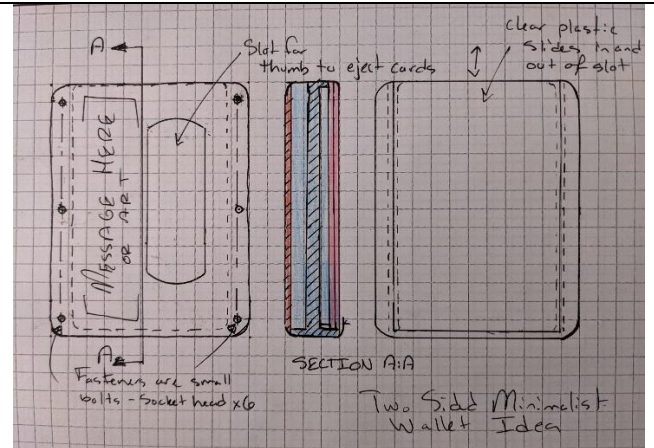 A
Slot for
thumb to eject cards
clear plastic
slides in and
out of slot
MESSAGE HERE
OR ART
A
Fasteners are small
bolts - Socket head x6
SECTION A:A
Two Sided Minimalist
Wallet Idea